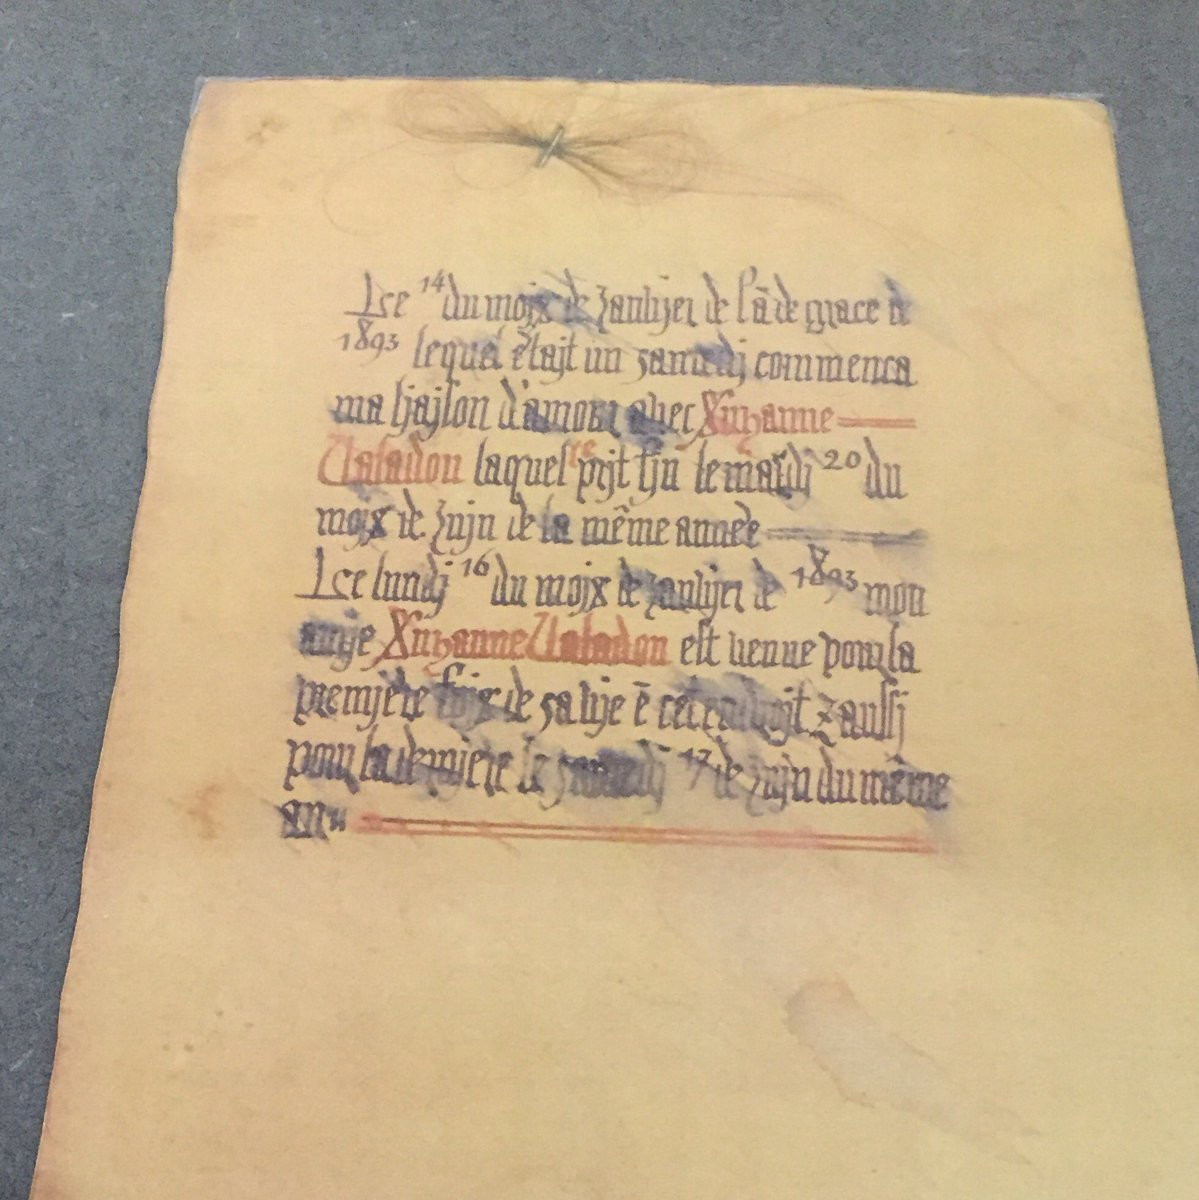 Lce 14 du mojx de Janvjer de l'ã de grace de
1893 lequel êtajt un samedj commenca
ma ljajson d'amour avec Xuzanne
Valadon laquelre prjt fjn le mardj 20 du
mojx de Jujn de la même année
Lce lundj 16 du mojx de Janvjer de 1893 mon
amje Xuzanne Valadon est venue pour la
premjère fojx de sa vje ẽ cet endrojt & aussj
pour la dernjere le samedj 17 de Jujn du même
an"